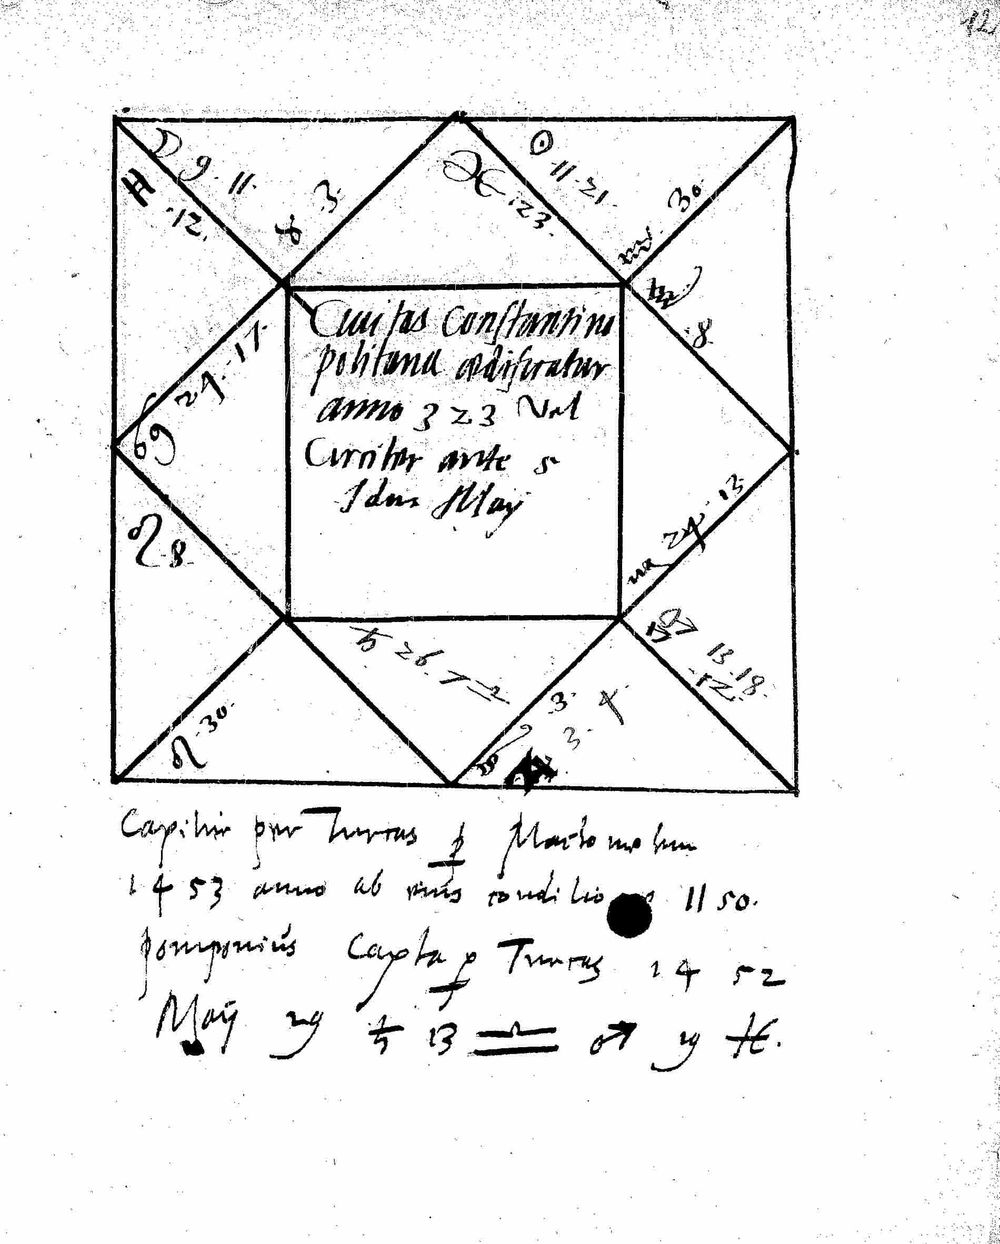 12
☽ 9 · 11
♓ · 12 ·
♉ 3
♓ · 23 ·
☉ 11 · 21
♒ 30
♑
8
24 · 17
♋
♌ 8
♌ · 30 ·
Ciuitas Constantino
politana ædificatur
anno 323 Vel
Circiter ante 5
Idus Maij
♄ 26 · 7 ♎
♏ · 3 ·
3 · 4
♃ 13
13 · 18
· 12 ·
Capitur per Turcas p Machometum
1453 anno ab eius conditione 1150 ·
pomponius Capta p Turcas 1452
Maij 29 ♄ 13 ♎ ♂ 29 ♓ ·